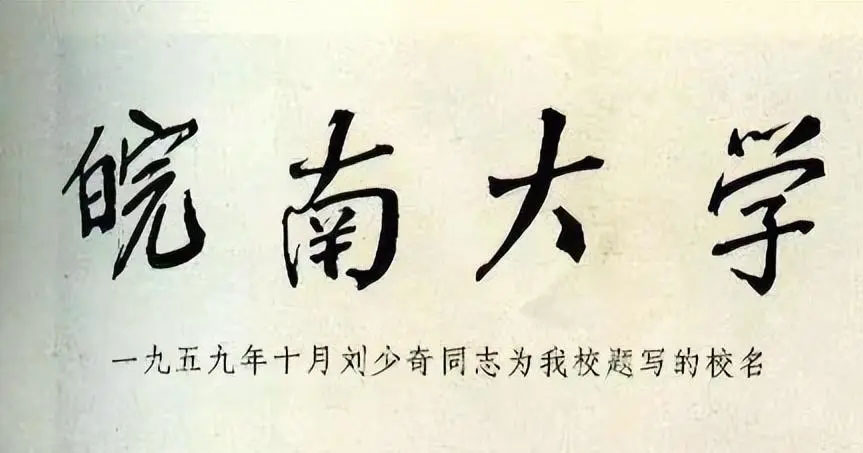 皖南大学
一九五九年十月刘少奇同志为我校题写的校名